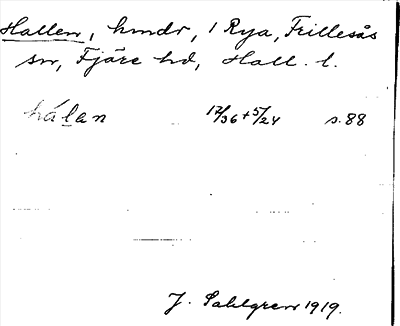 Hallen, hmdr, 1 Rya, Frillesås
sn, Fjäre hd, Hall. l.
hálan 12/36+5/24 s. 88
J. Sahlgren 1919.